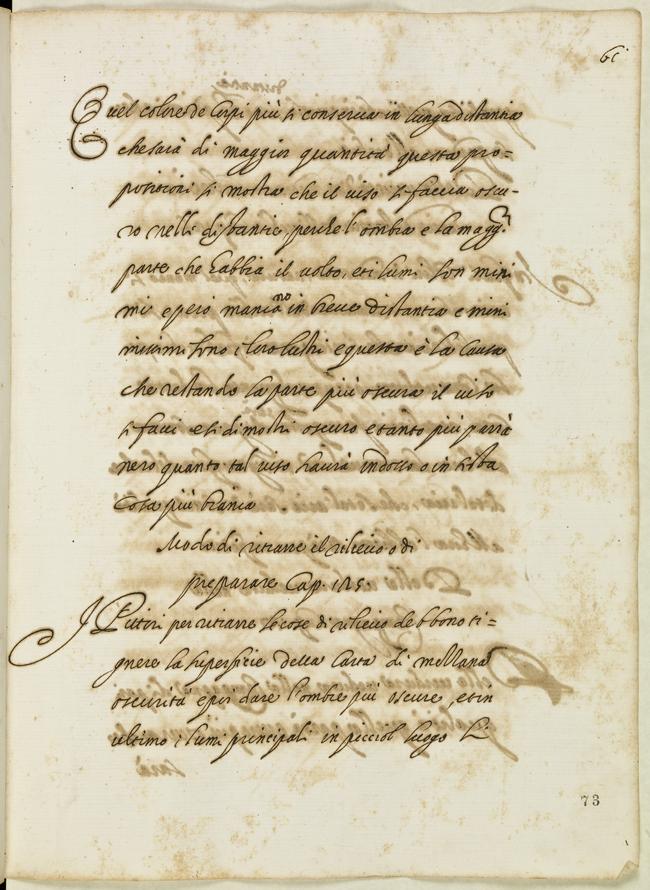 61
Quel colore de Corpi più si conserva in lunga distantia
che sarà di maggior quantità questa pro=
positioni si mostra che il viso si faccia oscu-
ro nelle distantie, perche l'ombra e la magg.r
parte che habbia il volto, et i lumi son mini
mi e però mancano in breve distantia e mini
missimi sono i loro lustri e questa è la causa
che restando la parte più oscura il viso
si facci e si dimostri oscuro e tanto più parrà
nero quanto tal viso haurà indosso o in testa
Cosa più bianca
Modo di ritrarre il rilievo o di
preparare Cap. 125.
I Pittori per ritrarre le cose di rilievo debbono ti=
gnere la superficie della Carta di mezzana
oscurità e poi dare l'ombre più oscure, et in
ultimo i lumi principali in piccol luogo li
73